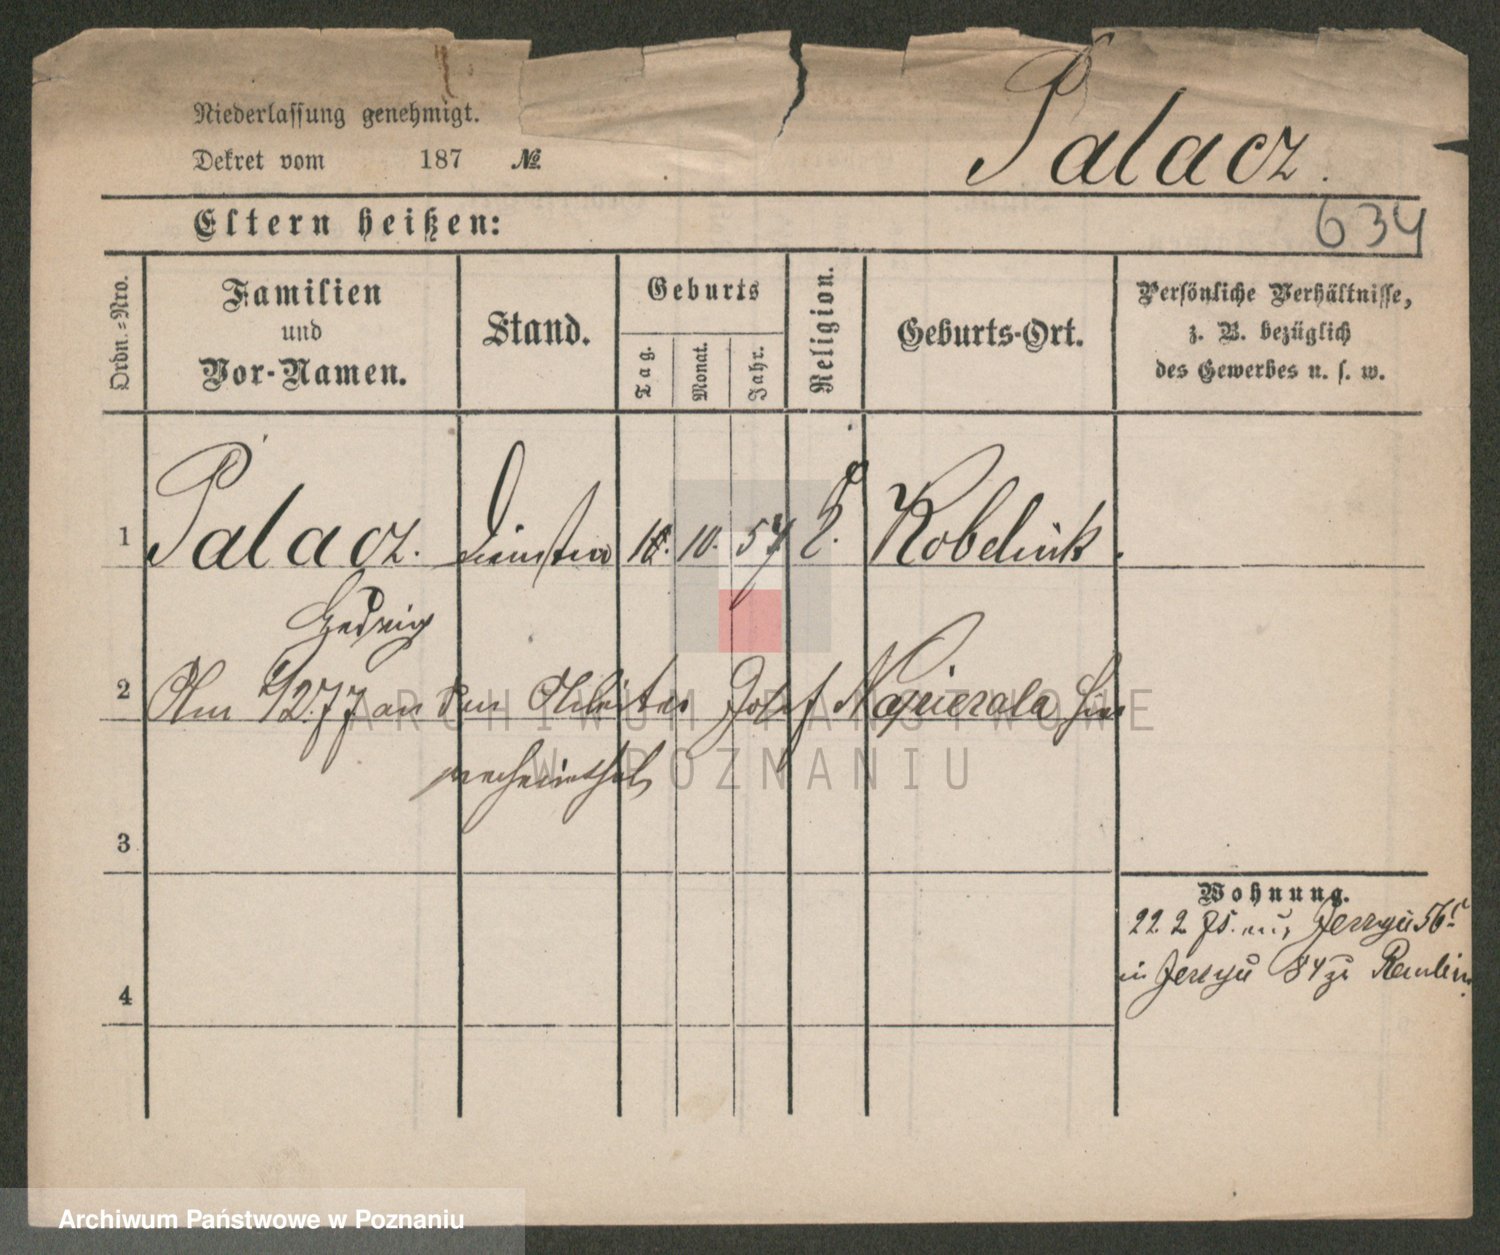 Niederlassung genehmigt.
Dekret vom 187 №
Palacz.
Eltern heißen:
634
Ordn.-Nro.
Familien
und
Vor-Namen.
Stand.
Geburts
Tag.
Monat.
Jahr.
Religion.
Geburts-Ort.
Persönliche Verhältnisse,
z. B. bezüglich
des Gewerbes u. s. w.
1 Palacz. 10. 57 Kobelnik.
Hedwig
2 Am 277 an den Arbeiter Josef Napierala hier
verheirathet
3
Wohnung.
22 2 Jerzyce 56
in Jerzyce 84 zu
4
ARCHIWUM PAŃSTWOWE
W POZNANIU
Archiwum Państwowe w Poznaniu